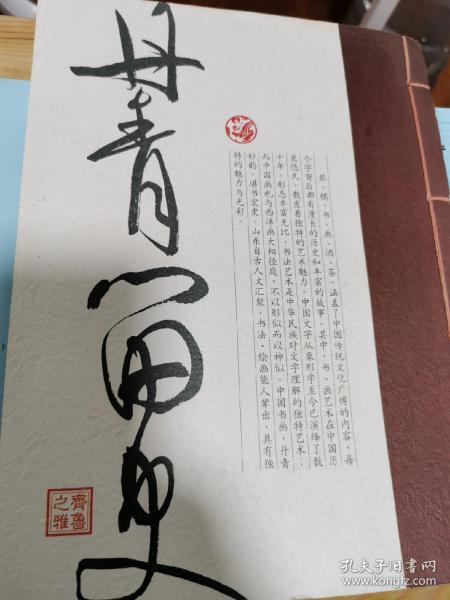 丹青
琴、棋、书、画、酒、茶,涵盖了中国传统文化广博的内容,每
个字背后都有漫长的历史和丰富的故事。其中,书、画艺术在中国历
史悠久,散发着独特的艺术魅力。中国文字从象形字至今已演绎了数
千年,形态丰富无比,书法艺术是中华民族对文字理解的独特艺术;
而中国画也与西洋画大相径庭,不以形似而以神似。中国书画,丹青
妙韵,堪书宏史。山东自古人文汇聚,书法、绘画能人辈出,具有独
特的魅力与光彩。
齊魯
之雅
孔夫子旧书网
www.kongfz.com